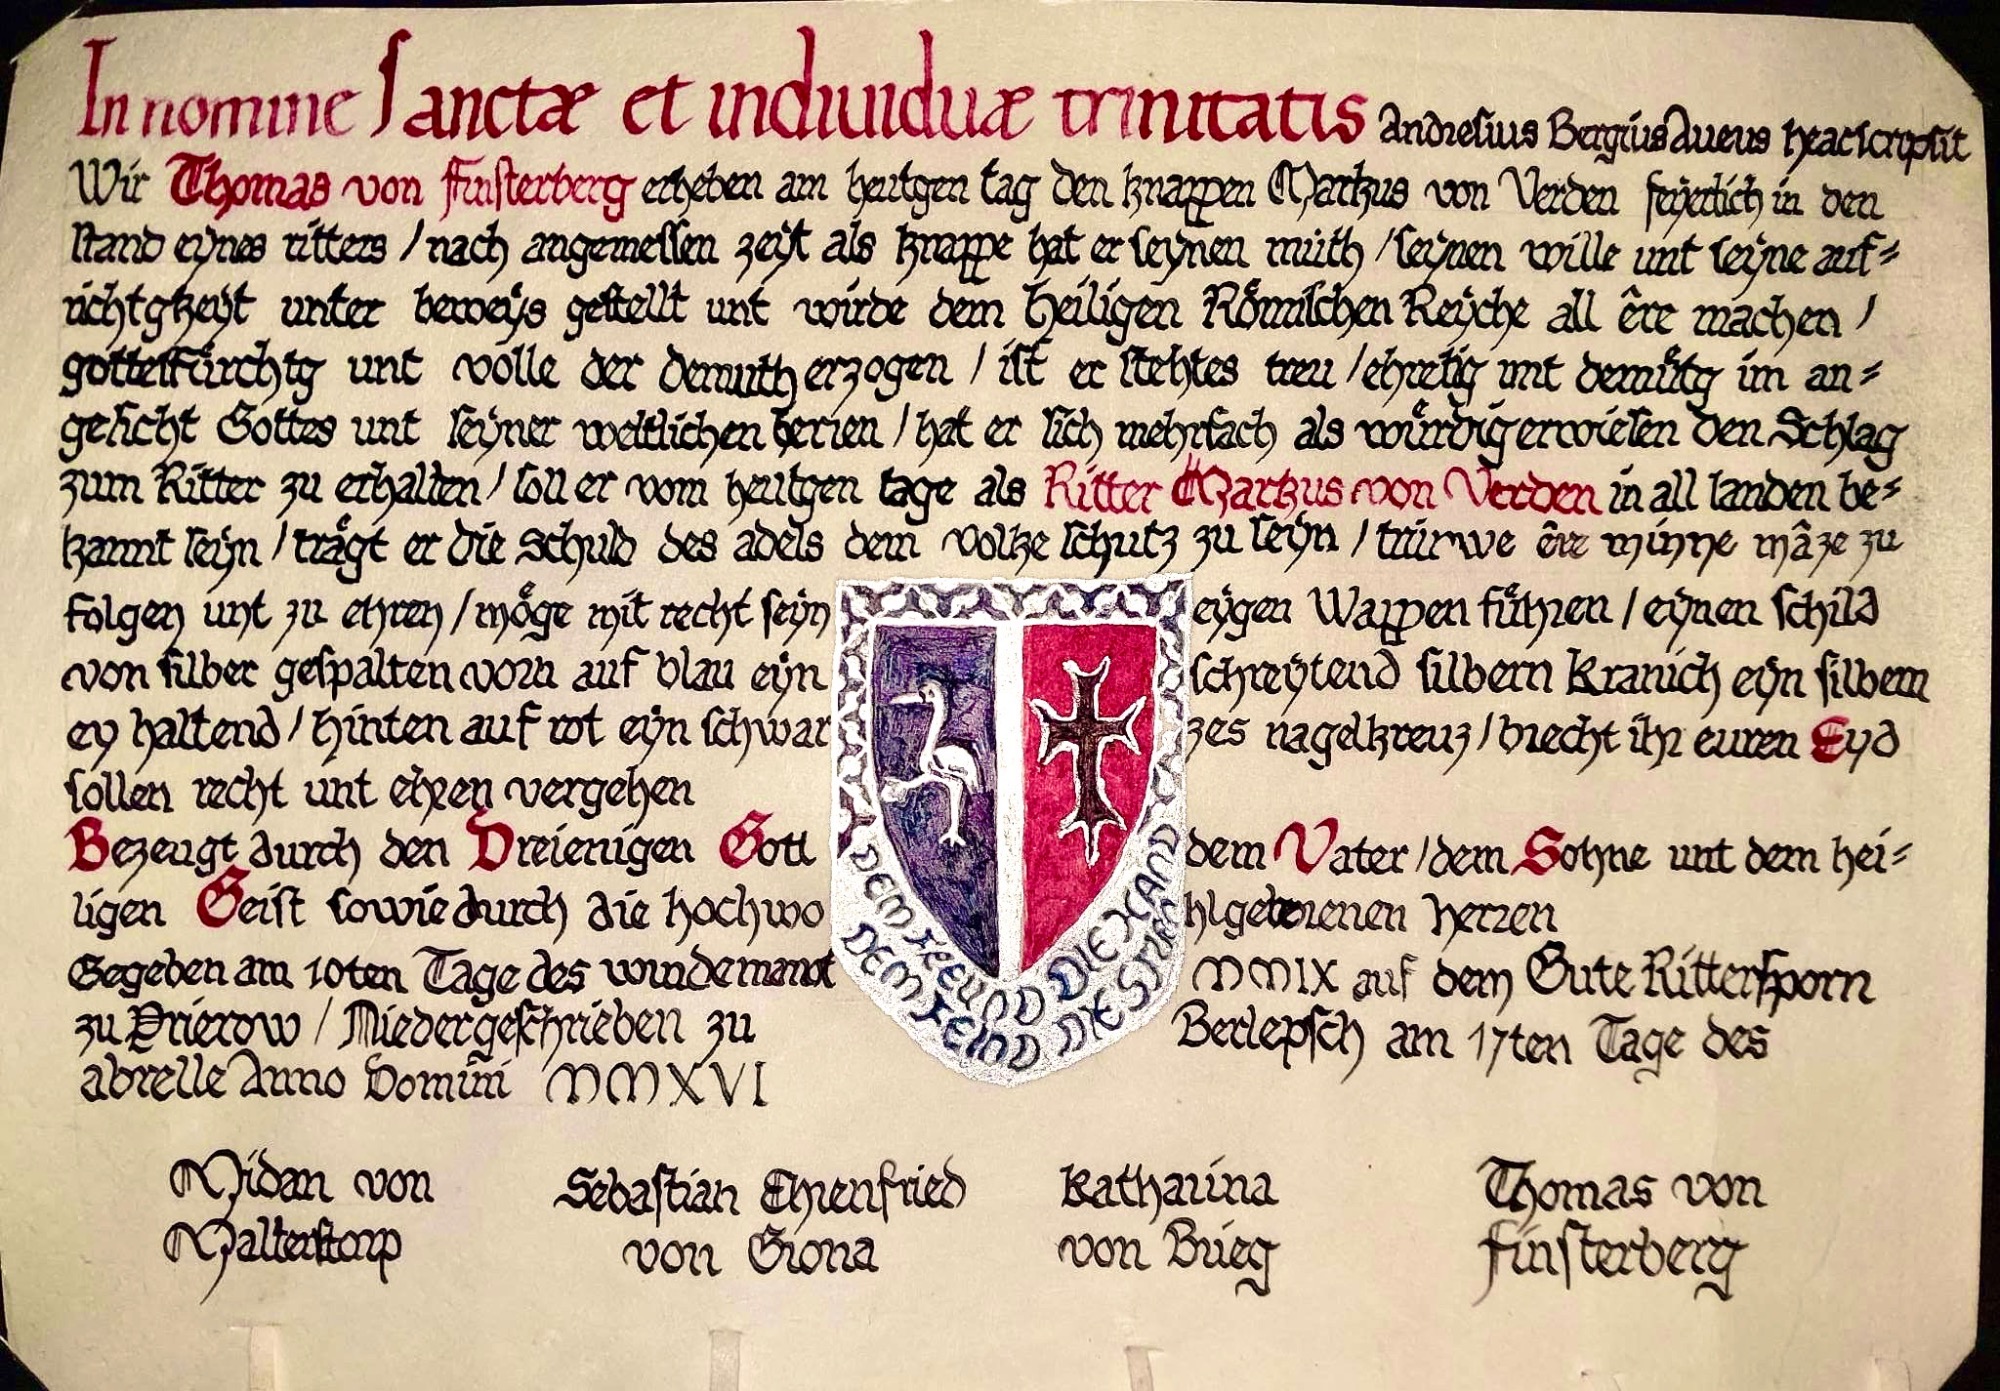 In nomine Sanctæ et indiuiduæ trinitatis Andresius Bergius Aueus heac scripsit
Wir Thomas von Finsterberg erheben am heutgen tag den knappen Markus von Verden feyerlich in den
stand eynes ritters / nach angemessen zeyt als knappe hat er seynen muth / seynen wille unt seyne auf=
richtgkeyt unter beweys gestellt unt wirde dem Heiligen Römischen Reyche all êre machen /
gottesfürchtg unt volle der demuth erzogen / ist er stehtes treu / ehretig unt demütg im an=
gesicht Gottes unt seyner weltlichen herren / hat er sich mehrfach als würdig erwiesen den Schlag
zum Ritter zu erhalten / soll er vom heutgen tage als Ritter Markus von Verden in all landen be=
kannt seyn / trägt er die schuld des adels dem volke schutz zu seyn / triuwe êre minne mâze zu
folgen unt zu ehren / möge mit recht seyn eygen Wappen führen / eynen schild
von silber gespalten vorn auf blau eyn schreytend silbern Kranich eyn silbern
ey haltend / hinten auf rot eyn schwarzes nagelkreuz / brecht ihr euren Eyd
sollen recht unt ehren vergehen
Bezeugt durch den Dreienigen Gott dem Vater / dem Sohne unt dem hei=
ligen Geist sowie durch die hochwohlgeborenen herren
Gegeben am 10ten Tage des windemanot MMIX auf dem Gute Rittersporn
zu Prierow / Niedergeschrieben zu Berlepsch am 17ten Tage des
abrelle Anno Domini MMXVI
DEM FREUND DIE HAND
DEM FEIND DIE STIRN
Midan von
Malterstorp
Sebastian Ehrenfried
von Grona
Katharina
von Brieg
Thomas von
Finsterberg